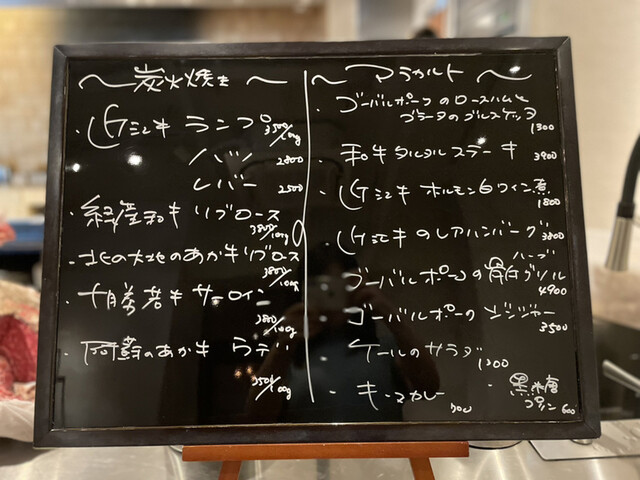 ～炭火焼き～
・ジビーフ ランプ 3500/100g
ハツ 2800
レバー 2500
・経産和牛 リブロース 3800/100g
・北の大地のあか牛リブロース 3800/100g
・十勝若牛 サーロイン 3800/100g
・阿蘇のあか牛 ラムシン 3500/100g
～アラカルト～
・ゴーバルポークのロースハムと
ブラータのブルスケッタ 1300
・和牛タルタルステーキ 3900
ホルモン白ワイン煮 1800
のレアハンバーグ 3800
ハーブ
・ゴーバルポークの骨付グリル 4900
・ゴーバルポークの ジンジャー 3500
・ケールのサラダ 1300
・キーマカレー
・黒糖
プリン 600